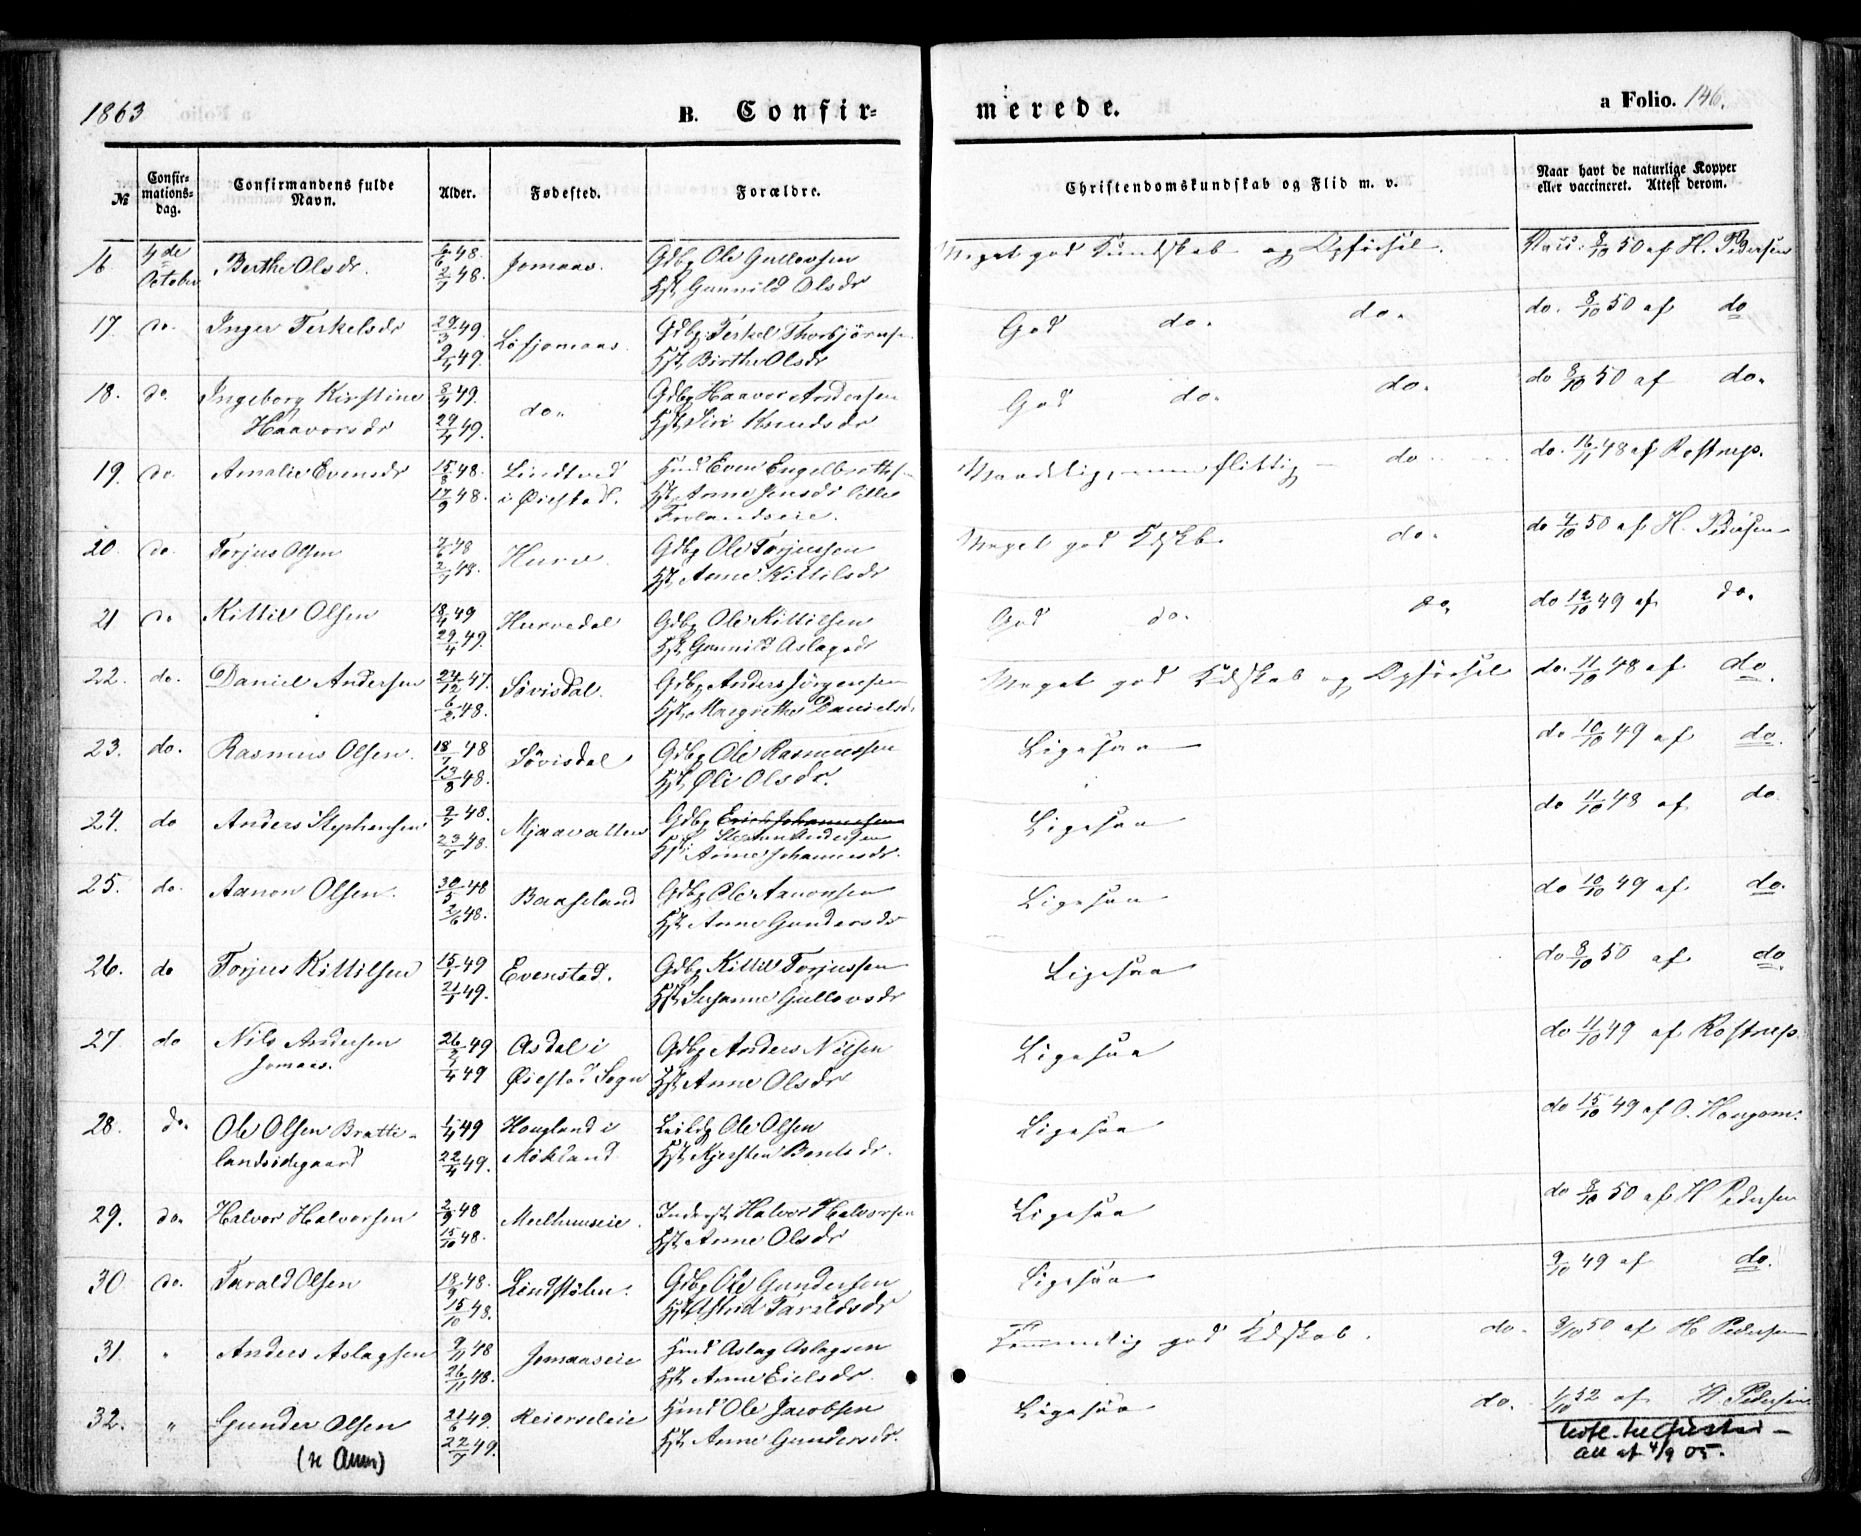 1863
B. Confirmerede.
a Folio. 146.
№ Confirmations-dag. Confirmandens fulde Navn. Alder. Fødested. Forældre. Christendomskundskab og Flid m. v. Naar havt de naturlige Kopper eller vaccineret. Attest derom.
16 4de October Berthe Olsdr. 6/6 48. 2/7 48. Jomaas. Gdbg Ole Gullovsen Hst Gunnild Olsdr Meget god Kundskab og Opførsel. Vacc. 8/10 50 af H. Pedersen
17. do. Inger Terkelsdr 29/3 49. 9/4 49. Løfjomaas. Gdbg Terkel Thorbjørnsen Hst Birthe Olsdr God do. do. do. 8/10 50 af do
18. do. Ingeborg Kirstine Haavorsdr 8/4 49. 29/4 49. do. Gdbg Haavor Andersen Hst Siri Knudsdr God do. do. do 8/10 50 af do.
19. do. Amalie Evensdr 15/8 48. 17/9 48. Lindtved i Øiestad. Hmd Even Engelbrethsen Hst Anne Jensdr Frolandseie. Maadelig, men flittig do. do. 16/11 48 af Rostrup.
20. do. Torjus Olsen 7/6 48 2/7 48. Hurve. Gdbg Ole Torjussen Hst Anne Kittilsdr Meget god Kdskb. do. do 9/10 50 af H. Pedersen
21 do Kittil Olsen 18/4 49 29/4 49. Hurvedal Gdbg Ole Kittilsen Hst Gunnild Aslagsdr God do. do. do 12/10 49 af do.
22. do. Daniel Andersen 24/12 47. 6/2 48. Søvisdal. Gdbg Anders Jørgensen Hst Margrethe Danielsdr Meget god Kdskab og Opførsel do. 11/10 48 af do.
23. do. Rasmus Olsen. 18/7 48 13/8 48. Søvisdal Gdbg Ole Rasmussen Hst Øli Olsdr. Ligesaa do 10/10 49 af do.
24. do Anders Stephensen 9/7 48. 23/7 48. Mjaavatten Gdbg Erick Johannesen Stephan Andersen Hst Anne Johannesdr. Ligesaa do 11/10 48 af do.
25. do. Aanon Olsen. 30/5 48 2/6 48. Baaseland Gdbg Ole Aanonsen Hst Anne Gundersdr Ligesaa do 10/10 49 af do.
26. do Torjus Kittilsen 15/1 49 21/1 49. Evenstad. Gdbg Kittil Torjussen Hst Susanne Gullovsdr Ligesaa do 8/10 50 af do
27 do Nils Andersen Jomaas. 26/2 49 1/4 49 Asdal i Øiestad Sogn Gdbg Anders Nilsen Hst Anne Olsdr Ligesaa do 11/10 49 af Rostrup.
28. do. Ole Olsen Brattelandsødegaard 1/4 49 22/4 49. Hougland i Mokland Leildg Ole Olsen Hst Kjersten Bentsdr. Ligesaa do 15/10 49 af O. Hougom.
29. do. Halvor Halvorsen 2/9 48 15/10 48. Moelhuuseie. Inderst Halvor Halvorsen Hst Anne Olsdr Ligesaa do 8/10 50 af H Pedersen
30 do. Tarald Olsen 18/9 48. 15/10 48. Lindstølen. Gdbg Ole Gundersen Hst Astrid Taraldsdr Ligesaa 9/10 49 af do.
31. " Anders Aslagsen 9/11 48 26/11 48. Jomaaseie Hmd Aslag Aslagsen Hst Anne Eielsdr. Temmelig god Kdskab. do. 8/10 50 af H Pedersen
32. " Gunder Olsen 21/6 49. 22/7 49. Reierseleie Hmd Ole Jacobsen Hst Anne Gundersdr. Ligesaa do. 1/10 52 af H. Pedersen
Att af 4/9 05.